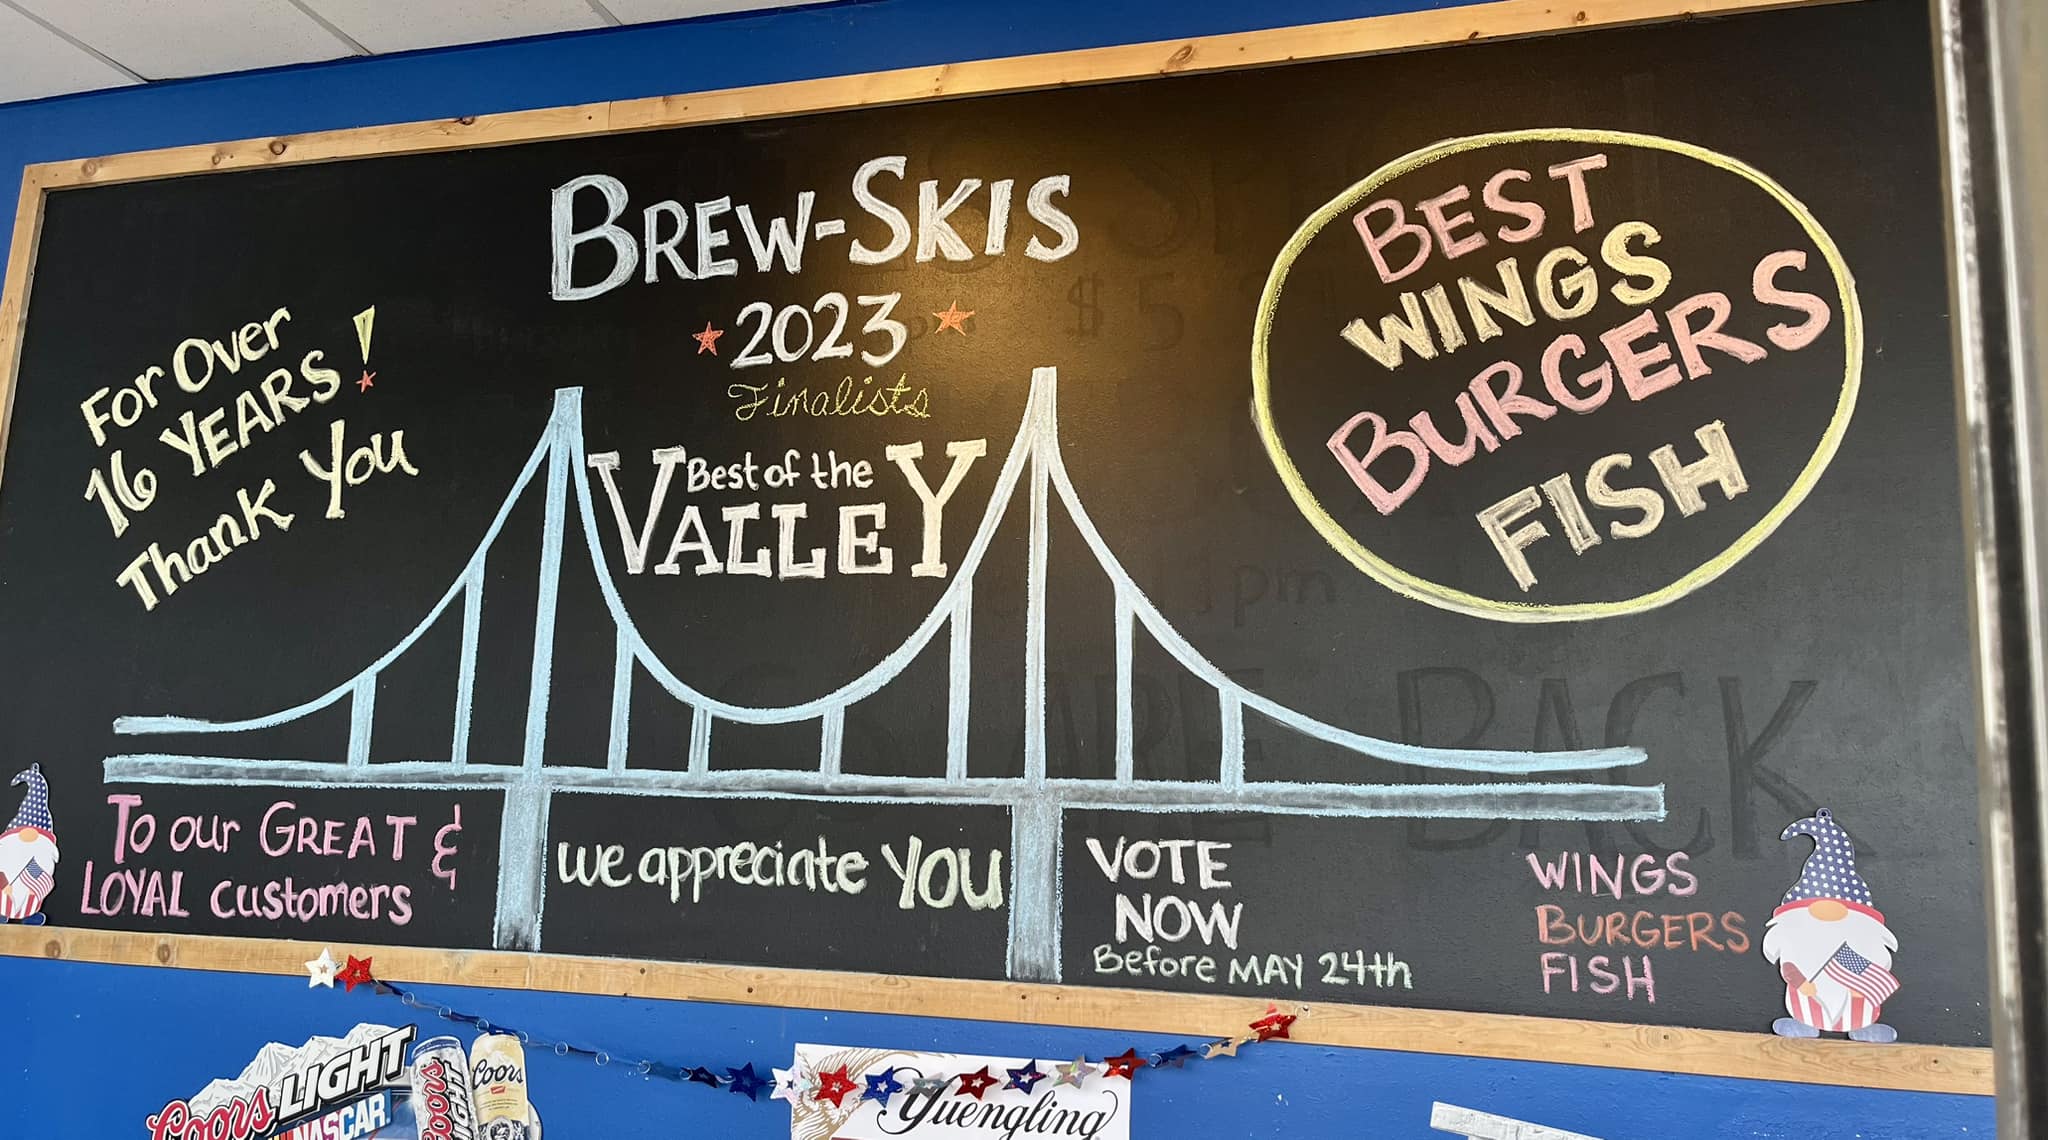 BREW-SKIS
2023
Finalists
Best of the
VALLEY
For Over
16 YEARS!
Thank You
BEST
WINGS
BURGERS
FISH
To our GREAT &
LOYAL customers
we appreciate YOU
VOTE
NOW
Before MAY 24th
WINGS
BURGERS
FISH
Coors LIGHT
NASCAR
Coors LIGHT
Coors
Yuengling